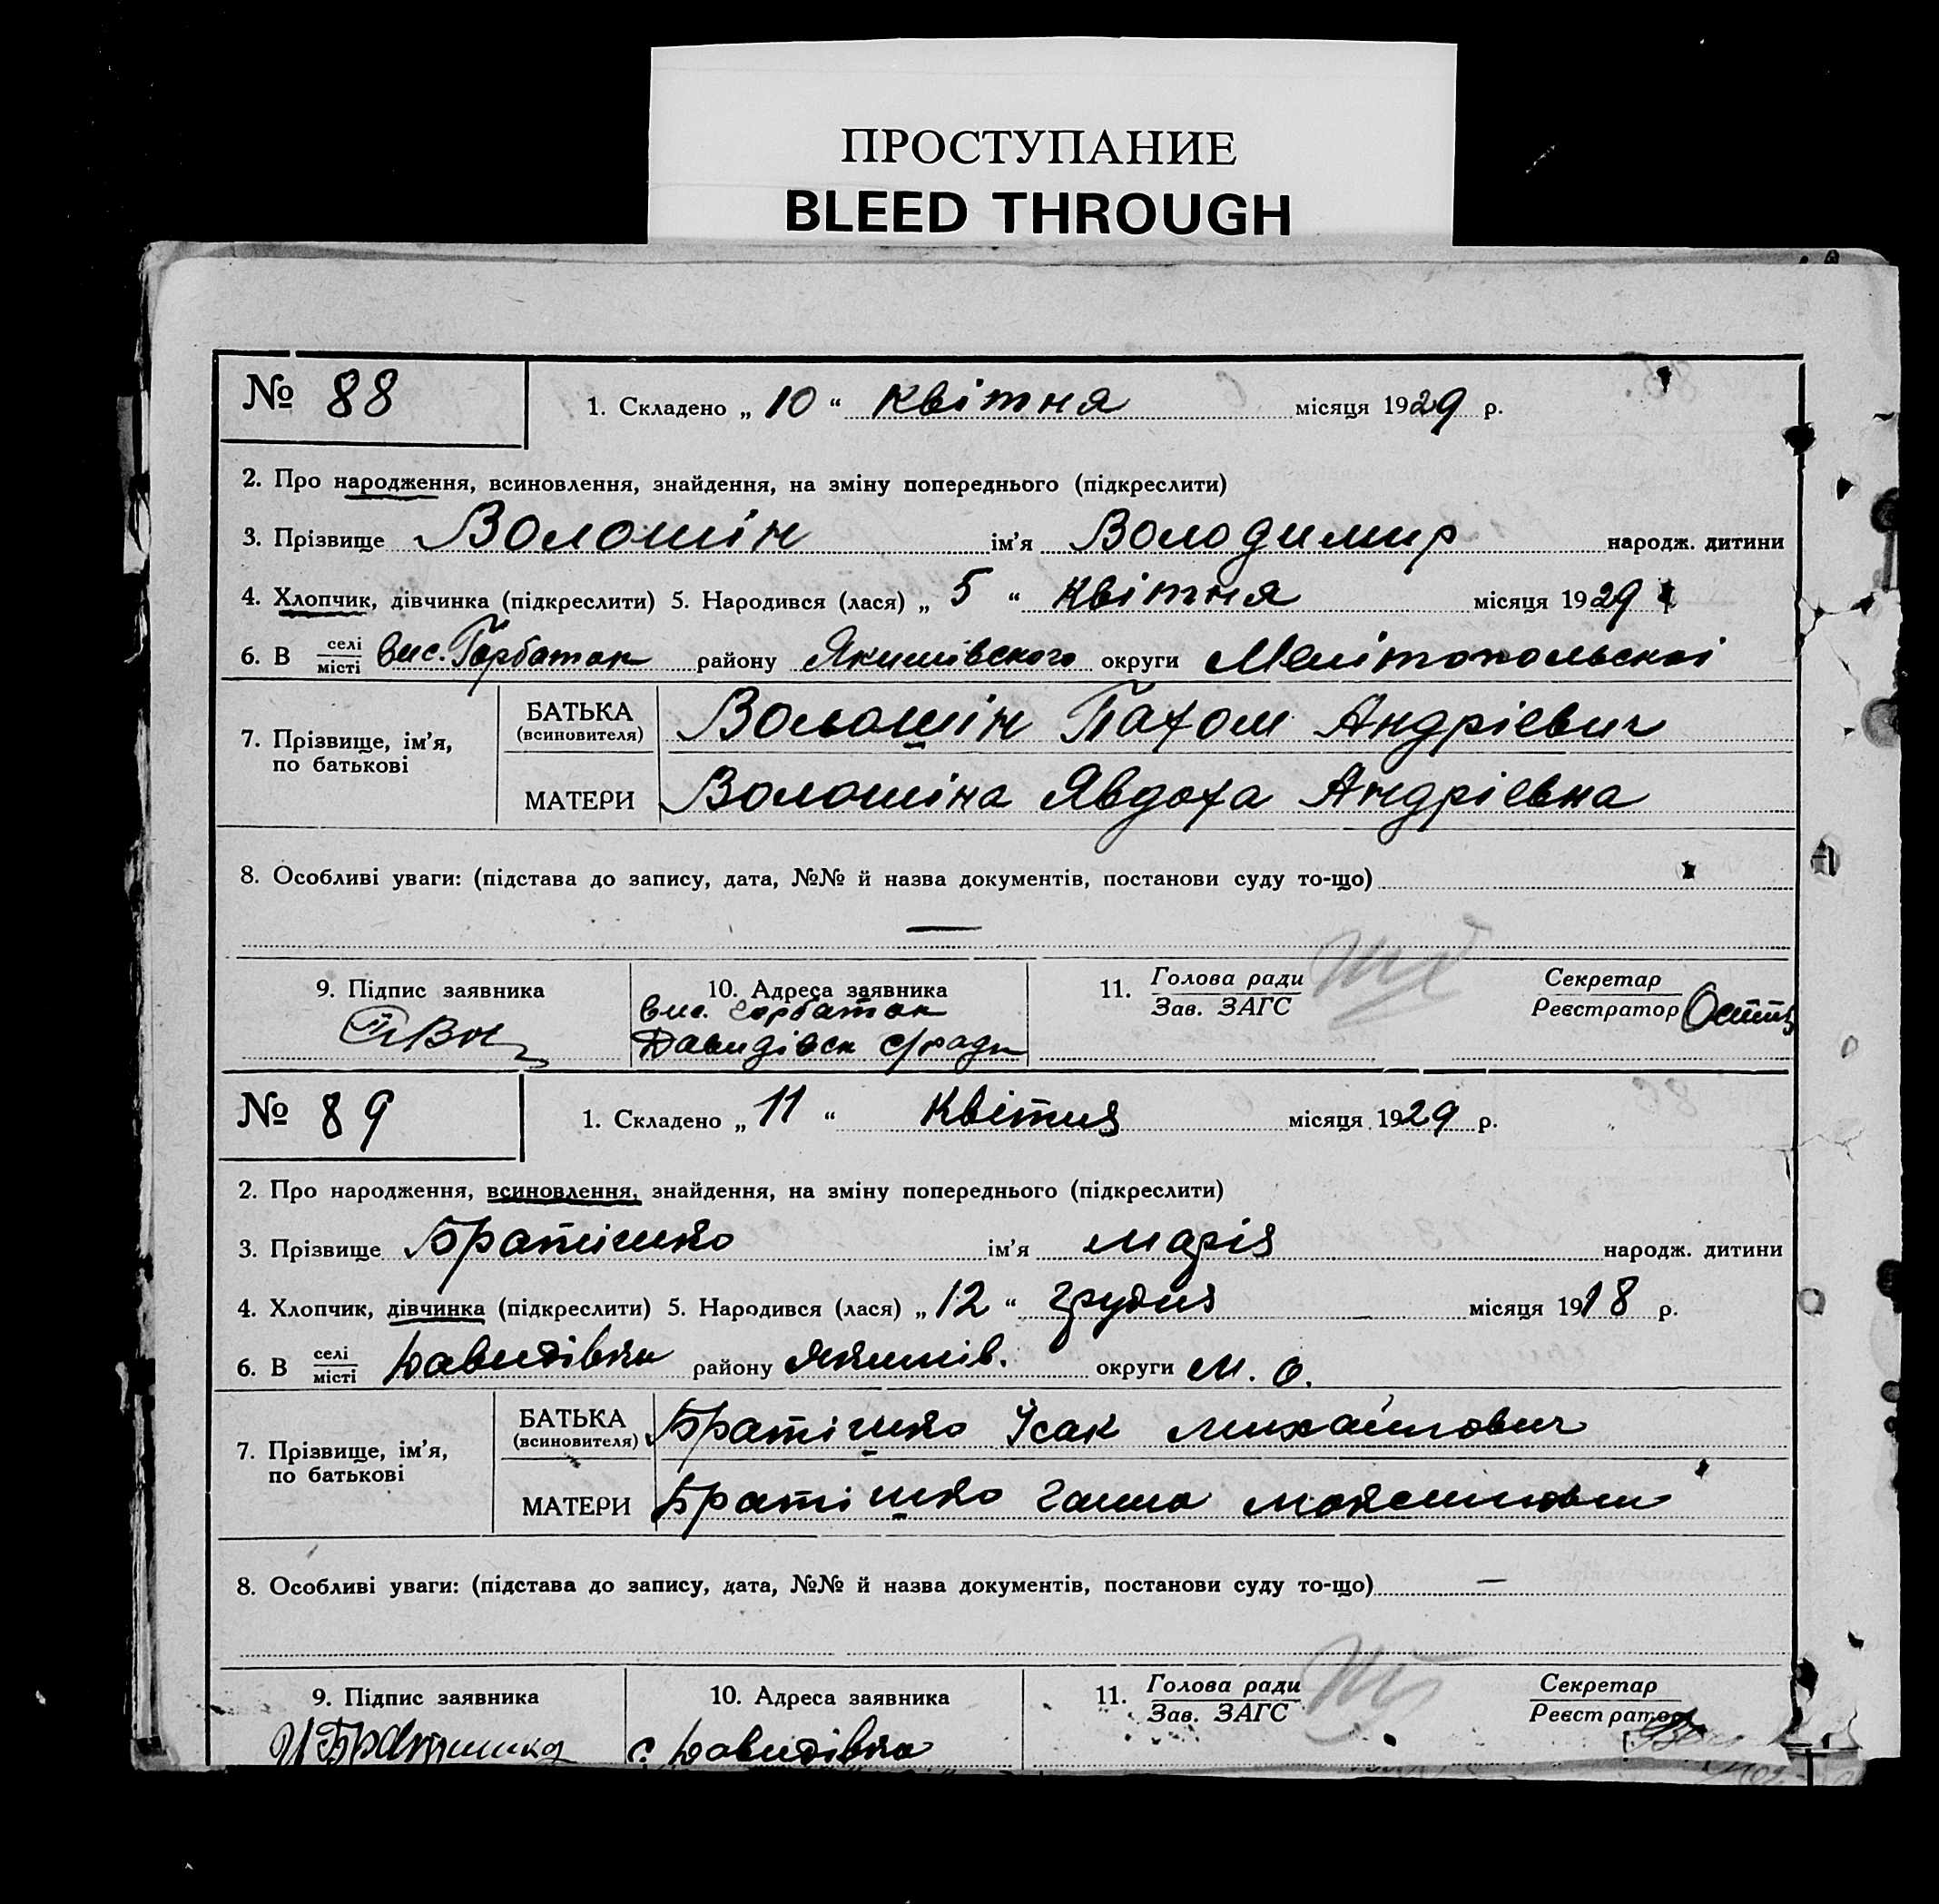 ПРОСТУПАНИЕ
BLEED THROUGH
№ 88
1. Складено „ 10 “ квітня місяця 1929 р.
2. Про народження, всиновлення, знайдення, на зміну попереднього (підкреслити)
3. Прізвище Волошін ім'я Володимир народж. дитини
4. Хлопчик, дівчинка (підкреслити) 5. Народився (лася) „ 5 “ квітня місяця 1929
6. В селі/місті вис. Горбаток району Якимівского округи Мелітопольскоі
7. Прізвище, ім'я, по батькові
БАТЬКА (всиновителя) Волошін Пахом Андрієвич
МАТЕРИ Волошіна Явдоха Андрієвна
8. Особливі уваги: (підстава до запису, дата, №№ й назва документів, постанови суду то-що)
—
9. Підпис заявника
10. Адреса заявника
вис. Горбаток
Давидівск с/ради
11. Голова ради/Зав. ЗАГС
Секретар/Реєстратор
№ 89
1. Складено „ 11 “ квітня місяця 1929 р.
2. Про народження, всиновлення, знайдення, на зміну попереднього (підкреслити)
3. Прізвище Братішко ім'я Марія народж. дитини
4. Хлопчик, дівчинка (підкреслити) 5. Народився (лася) „ 12 “ грудня місяця 1918 р.
6. В селі/місті Давидівка району Якимів. округи М. О.
7. Прізвище, ім'я, по батькові
БАТЬКА (всиновителя) Братішко Ісак Михайлович
МАТЕРИ Братішко Ганна
8. Особливі уваги: (підстава до запису, дата, №№ й назва документів, постанови суду то-що) —
9. Підпис заявника
10. Адреса заявника
с. Давидівка
11. Голова ради/Зав. ЗАГС
Секретар/Реєстратор